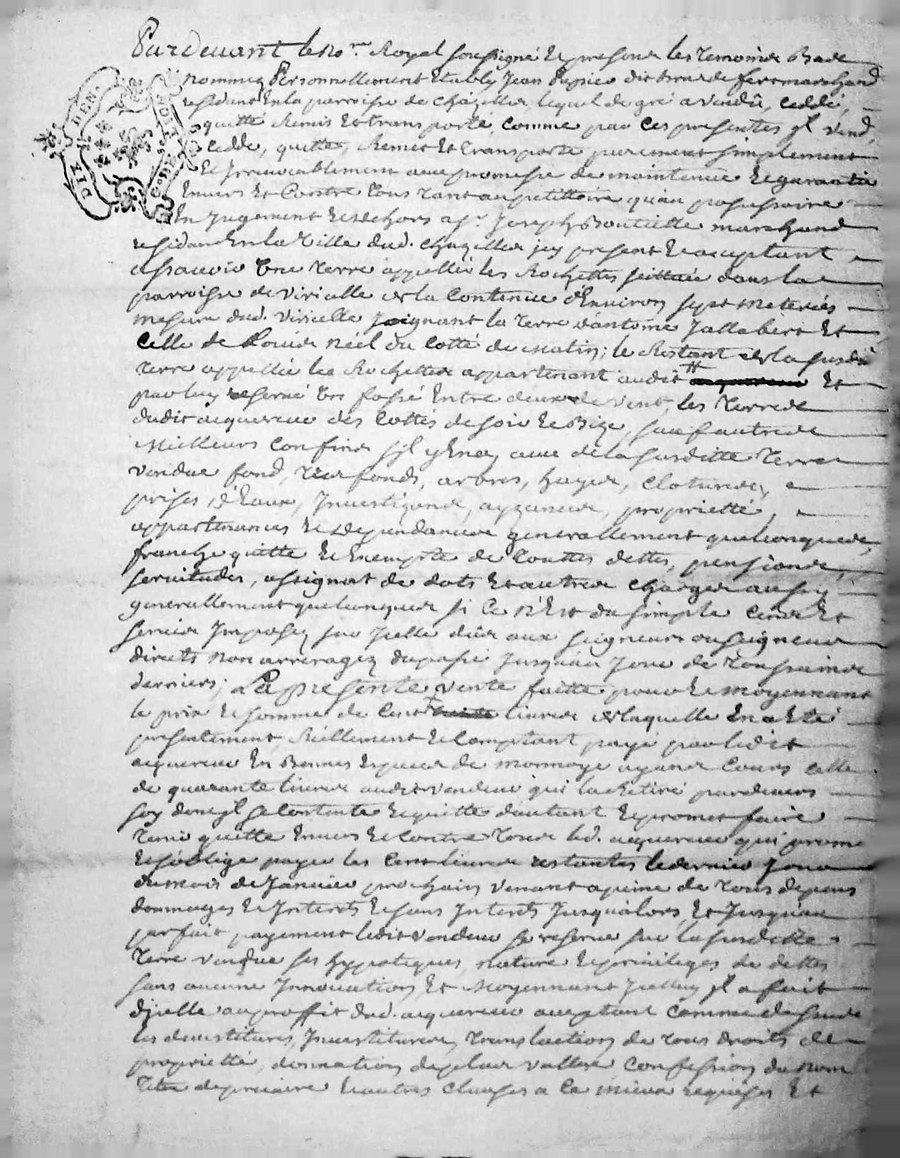 Pardevant le no.re Royal soussigné Et presens les temoins Bas
nommez Personnellement Etably Jean marchand
residant En la parroisse de Chazelles lequel de gré a vendû, ceddé,
quitté Remis Et transporté, comme par ces presentes Jl vend,
cedde, quitte, Remet Et transporte purement simplement
Et Irrevocablement avec promesse de maintenüe Et garantie
Envers Et Contre tous tant au petitoire qu'au possessoire
En Jugement Et dehors a Sr. Joseph Bouteille marchand
residant En la Ville dud. Chazelles icy present Et acceptant
assavoir Une terre appellée les Rochettes scittuée dans la
parroisse de Viricelle & la Contenüe d'Environ sept Meterées
mesure dud. Viricelle Joignant la terre d'antoine Jallabert Et
Celle de Néel du Cotté de Matin; le Restant & la susd.
terre appellée les Rochettes appartenant audit Et
par luy reservé Un fossé Entre deux de vent, les terres
dudit acquereur des Cottés de soir Et Bize, sauf autres
Meilleurs Confins s'il y En a, avec de la susditte terre
vendüe fond, tres fonds, arbres, hayes, Clotures,
prises d'Eaux, Investisons, ayzances, proprietté,
appartenances Et dependances generallement quelconques,
franche quitte Et Exempte de touttes dettes, pensions,
servitudes, assignat de dots Et autres charges aussy
generallement quelconques si Ce n'Est du simple Cens Et
servis Imposez sur Jcelle dûs aux seigneurs ou seigneur
directs non arreragez du passé Jusqu'au Jour de toussaints
derniers; La presente vente faitte pour Et moyennant
le prix Et somme de Cent livres & laquelle En a Eté
presentement, Réellement Et Comptant payé par ledit
acquereur En Bonnes Especes de monnoye ayant Cours celle
de quarante livres audit vendeur qui la Retiré pardevers
soy dont Jl se contente Et quitte d'autant Et promet faire
tenir quitte Envers Et Contre tous led. acquereur qui promet
Et s'oblige payer les Cent livres restantes le dernier Jour
du mois de Janvier prochain venant a peine de tous depens
dommages Et Interets Et sans Interets Jusqu'alors, Et Jusqu'au
parfait payement ledit vendeur se reserve sur la susditte
terre vendüe ses hypoteques, nature Et privileges de dettes
sans aucune Innovation, Et Moyennant Jcelluy Jl a fait
d'Jcelle au proffit dud. acquereur acceptant comme dessus
les devestitures, Investitures, translaction de tous droits de
proprietté, donnation de plus vallüe Confession du nom
titre de precaire Et autres clauses a Ce mieux requises Et